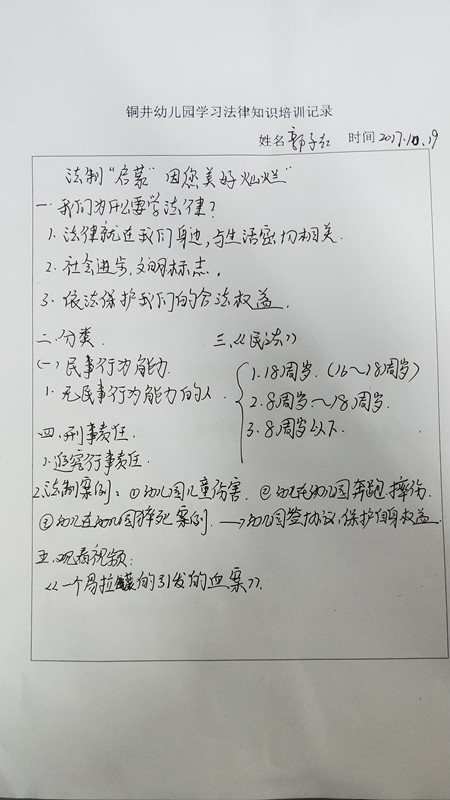 铜井幼儿园学习法律知识培训记录
姓名 郭子红 时间 2017.10.19
法制“启蒙”因您美好灿烂”
一.我们为什么要学法律？
1.法律就在我们身边,与生活密切相关.
2.社会进步,文明标志.
3.依法保护我们的合法权益.
二.分类. 三.《民法》
(一)民事行为能力. 1.18周岁.(16～18周岁)
1.无民事行为能力的人. 2.8周岁～18周岁.
四.刑事责任. 3.8周岁以下.
1.追究行事责任.
2.法制案例:①幼儿园儿童伤害.②幼儿在幼儿园奔跑摔伤.
③幼儿在幼儿园猝死案例.→幼儿园签协议,保护自身权益.
五.观看视频:
《一个易拉罐的引发的血案》.